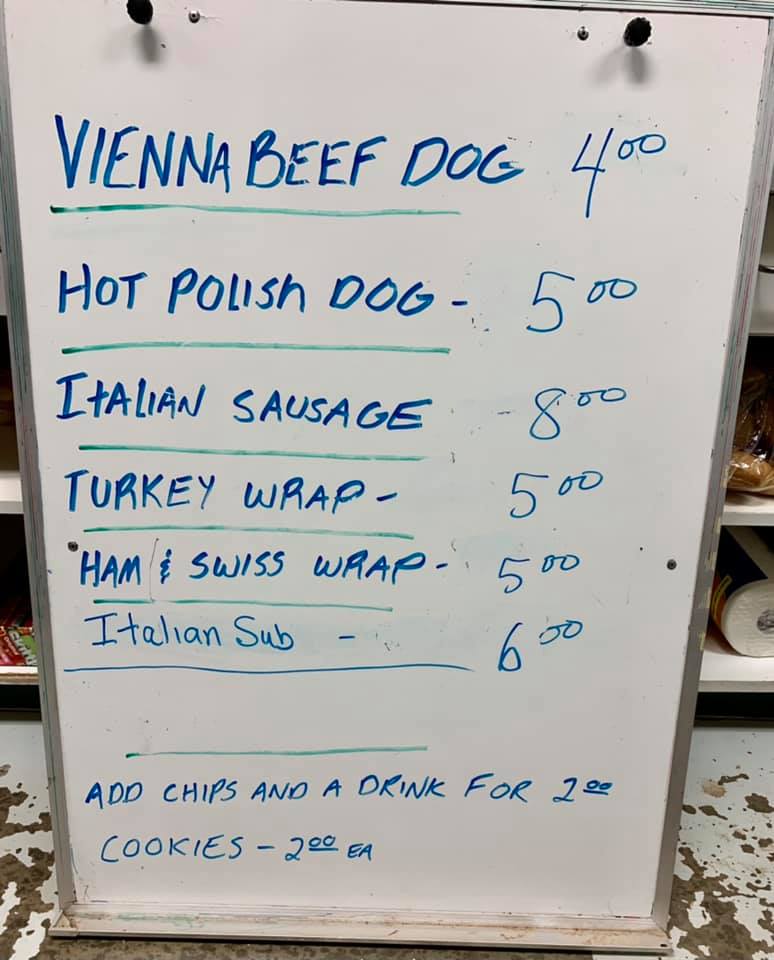 VIENNA BEEF DOG 4⁰⁰
HOT POLISH DOG - 5⁰⁰
ITALIAN SAUSAGE - 8⁰⁰
TURKEY WRAP - 5⁰⁰
HAM & SWISS WRAP - 5⁰⁰
Italian Sub - 6⁰⁰
ADD CHIPS AND A DRINK FOR 2⁰⁰
COOKIES - 2⁰⁰ EA